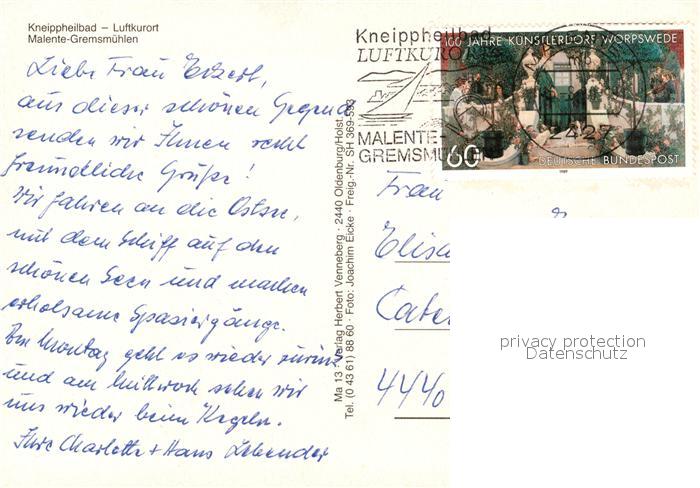 Kneippheilbad – Luftkurort
Malente-Gremsmühlen
Liebe Frau Eckert,
aus dieser schönen Gegend
senden wir Ihnen recht
freundliche Grüße!
Wir fahren an die Ostsee,
mit dem Schiff auf den
schönen Seen und machen
erholsame Spaziergänge.
Am Montag geht es wieder zurück
und am Mittwoch sehen wir
uns wieder beim Kegeln.
Ihre Charlotte + Hans
Ma 13 Verlag Herbert Venneberg · 2440 Oldenburg/Holst.
Tel. (0 43 61) 88 60 · Foto: Joachim Eicke · Freig.-Nr. SH 369-593
Kneippheilbad
LUFTKURO
MALENTE-
GREMSMÜ
2427
100 JAHRE KÜNSTLERDORF WORPSWEDE
60
DEUTSCHE BUNDESPOST
1989
Frau
Elisa
4440
privacy protection
Datenschutz